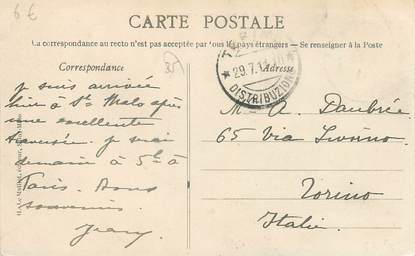 6€
CARTE POSTALE
La correspondance au recto n'est pas acceptée par tous les pays étrangers — Se renseigner à la Poste
Correspondance
35
Adresse
29.7.1
DISTRIBUZIONE
Je suis arrivée
hier à St Malo après
une excellente
traversée. Je vrai
demain à 5h à
Paris. Bons
souvenirs.
Jean
M A. Daubrée
65 Via Livorno
Torino
Italie.